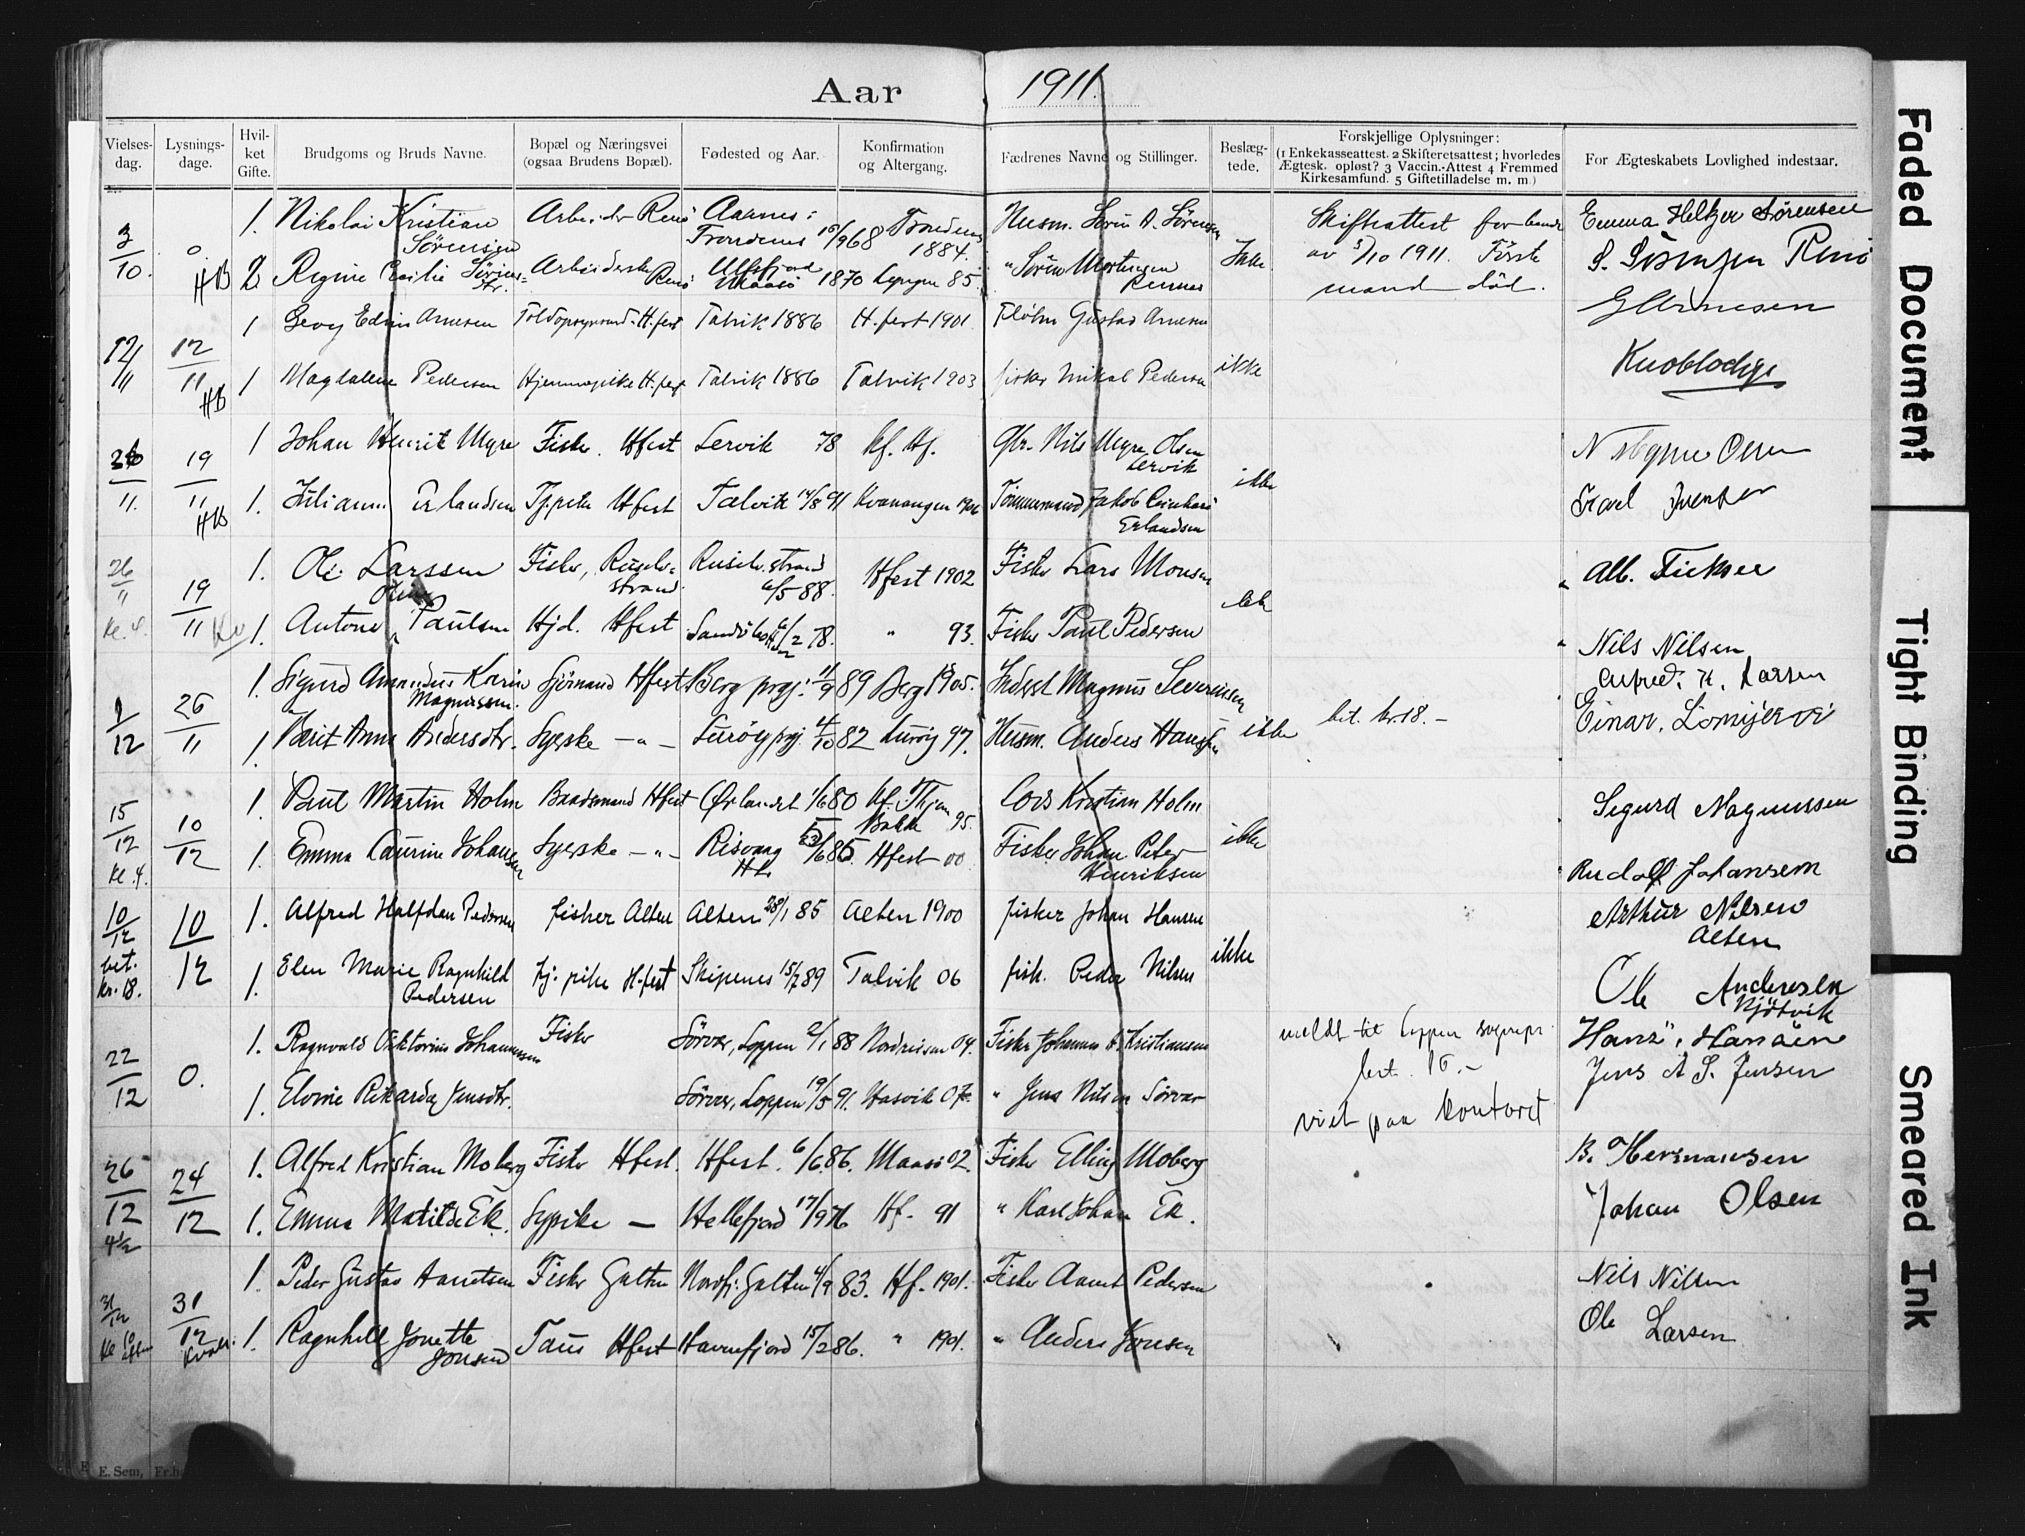 Aar 1911.
Vielses-dag. Lysnings-dage. Hvil-ket Gifte. Brudgoms og Bruds Navne. Bopæl og Næringsvei (ogsaa Brudens Bopæl). Fødested og Aar. Konfirmation og Altergang. Fædrenes Navne og Stillinger. Beslæg-tede. Forskjellige Oplysninger: (1 Enkekasseattest. 2 Skifteretsattest; hvorledes Ægtesk. opløst? 3 Vaccin.-Attest 4 Fremmed Kirkesamfund. 5 Giftetilladelse m. m.) For Ægteskabets Lovlighed indestaar.
3/10. 0. HB
1. Nikolai Kristian Sørensen Arbeider Renø Aarnes: Trondenes 15/9 68 Trondenes 1884. Husm. Søren A. Sørensen Skifteattest for
2. Regine Cecilie Arbeiderske Renø Ulfsfjord 1870 Lyngen 85. " Søren Mortensen Ikke av 5/10 1911. Første mand død.
Emma Heltzer Sørensen
S. Sörensen Renö
12/11 12/11 HB
1 Levy Edvin Arnesen H.fest Talvik 1886 H.fest 1901. Gustav Arnesen
1 Magdalene Pedersen Hjemmepike H.fest Talvik 1886 Talvik 1903 fisker Mikal Pedersen ikke
G Arnesen
26/11. 19/11 HB
1 Johan Henrik Myre Fisker. Hfest Lervik 78 Kf. Hf. Gbr. Nils Myre Olsen Lervik
1. Erlandsen Tj.pike Hfest Talvik 14/8 91 Kvænangen 1906 Tømmermand Jakob Erlandsen ikke
26/11 Kl. 4. 19/11 Kv
1. Ole Larssen Fisker, Russelv-strand. Russelv.strand 6/5 88. Hfest 1902 Fisker Lars Monsen
1. Antone Paulsen Hjd. Hfest 78. " 93. Fisker Paul Pedersen ikke
Alb. Ticksee
Nils Nilsen
Alfred. K. Larsen
1/12 26/11
1. Sigurd Magnussen. Sjømand Hfest Berg prgj. 1/9 89 Berg 1905. Indsst Magnus Severinsen
1. Berit Anna Andersdtr. Syerske - " - Lurøy prgj. 4/10 82 Lurøy 97. Husm. Anders Hansen ikke bet. kr. 18. -
15/12 kl. 4. 10/12
1. Paul Martin Holm Baadsmand Hfest Ørlandet 1/6 80 95. Lods Kristian Holm
1. Emma Laurine Johansen Syerske - " - Risvaag 23/6 85 Hfest 00 Fisker Johan Peter Henriksen ikke
Sigurd Magnussen
Rudolf Johansen
10/12 bet. kr. 18. 10/12
1. Alfred Halfdan Pedersen fisker Alten Alten 28/1 85 Alten 1900 fisker Johan Hansen
1. Elen Marie Ragnhild Pedersen tj: pike H.fest Skipenes 15/7 89 Talvik 06 fisk. Peder Nilsen ikke
Arthur Nilsen Alten
Ole Andersen Kjøsvik
22/12 0.
1. Ragnvald Viktorius Johannessen Fisker Sørvær, Loppen 2/1 88 Nordreisen 04. Fisker Johannes Kristiansen meldt til Loppen sogneprest bet. 16. -
1. Elvine Rikarda Jensdtr. Sørvær, Loppen 19/5 91. Hasvik 07. " Jens Nilsen Sørvær viet paa kontoret
Hans, Hansen
Jens A S. Jensen
26/12 4½ 24/12
1. Alfred Kristian Moberg Fisker Hfest. Hfest. 6/6 86. Maasø 02. Fisker Elling Moberg
1. Emma Matilde Ek. Sypike — Hellefjord 17/9 76 Hf. 91 " Karl Johan Ek.
B. Hermansen
Johan Olsen
31/12 kl 6 aften 31/12
1. Peder Gustav Aanetsen Fisker Galten Galten 4/9 83. Hf. 1901. Fisker Aanet Pedersen
1. Ragnhild Jonette Jonsen Taus Hfest Havnefjord 15/2 86. " 1901. " Anders Jonsen
Nils Nilsen
Ole Larsen
E. Sem,
Faded Document
Tight Binding
Smeared Ink